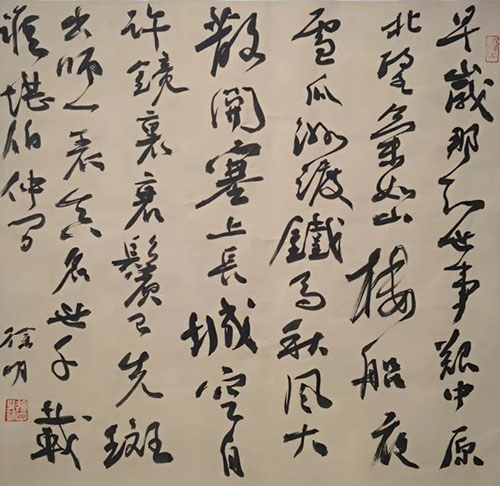 早歲那知世事艱中原
北望氣如山樓船夜
雪瓜洲渡鐵馬秋風大
散關塞上長城空自
許鏡裏衰鬢已先斑
出師一表真名世千載
誰堪伯仲間
徐明